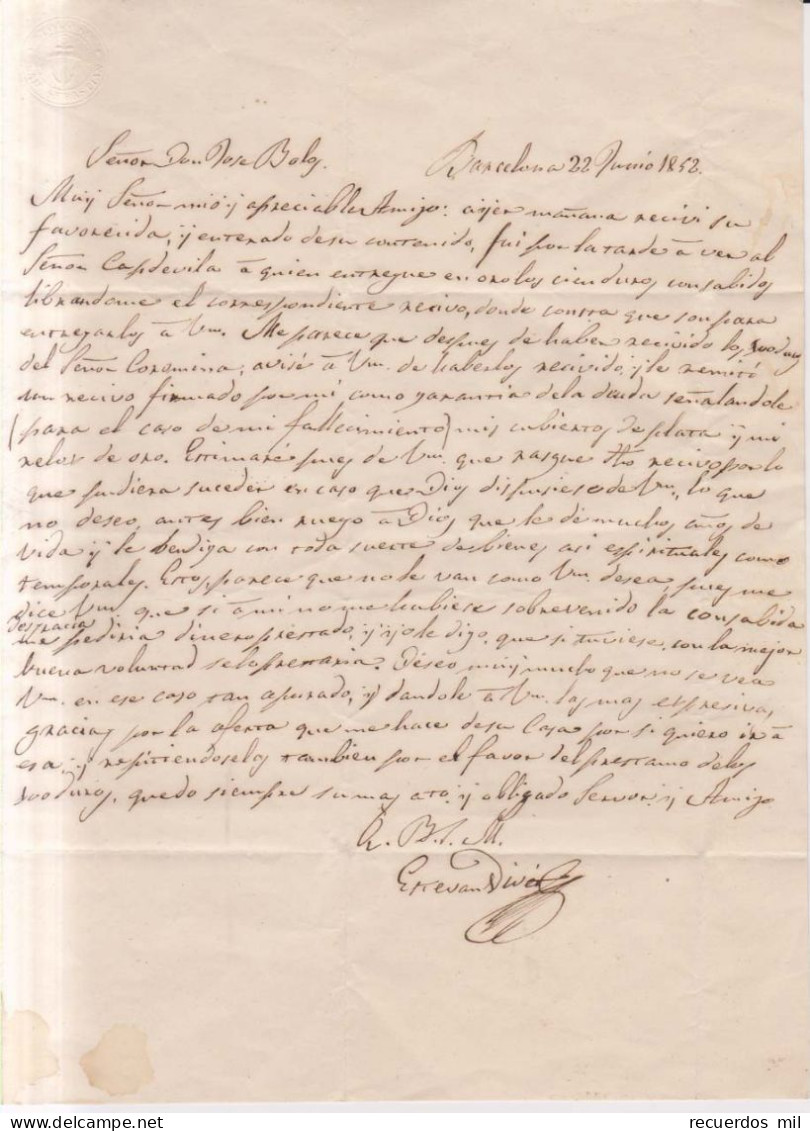 Señor Don Jose Boley.
Barcelona 22 Junio 1852.
Muy Señor mio y apreciable Amigo: ayer mañana recivi su
favorecida, y enterado de su contenido, fui por la tarde à ver al
Señor Capdevila à quien entregue en oro los cien duros consabidos
librandome el correspondiente recivo, donde consta que son para
entregarlos à Vm. Me parece que despues de haber recivido los 100 duros
del Señor Coromina, avisé à Vm. de haberlos recivido, y le remití
un recivo firmado por mi como garantia de la deuda señalandole
(para el caso de mi fallecimiento) mis cubiertos de plata y mi
relox de oro. Estimaré pues de Vm. que rasgue dho recivo por lo
que pudiera suceder en caso que Dios dispusiese de Vm, lo que
no deseo, antes bien ruego à Dios que le dé muchos años de
vida y le bendiga con toda suerte de bienes asi espirituales como
temporales. Estos, parece que no le van como Vm. desea, pues me
dice Vm. que si à mi no me hubiese sobrevenido la consabida
desgracia
me pediria dinero prestado, y yo le digo, que si tuviese, con la mejor
buena voluntad se lo prestaria. Deseo muy mucho que no se vea
Vm. en ese caso tan apurado, y dandole à Vm. las mas espresivas
gracias por la oferta que me hace de su Casa por si quiero ir à
esa, y repitiendoselas tambien por el favor del prestamo de los
100 duros, quedo siempre su mas ato. y obligado Servor. y Amigo
Q. B. S. M.
Estevan Divi
recuerdos_mil